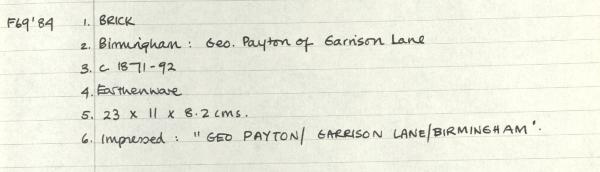 F69'84 1. BRICK
2. Birmingham : Geo. Payton of Garrison Lane
3. c 1871-92
4. Earthenware
5. 23 x 11 x 8.2 cms.
6. Impressed : " GEO PAYTON/ GARRISON LANE/BIRMINGHAM".